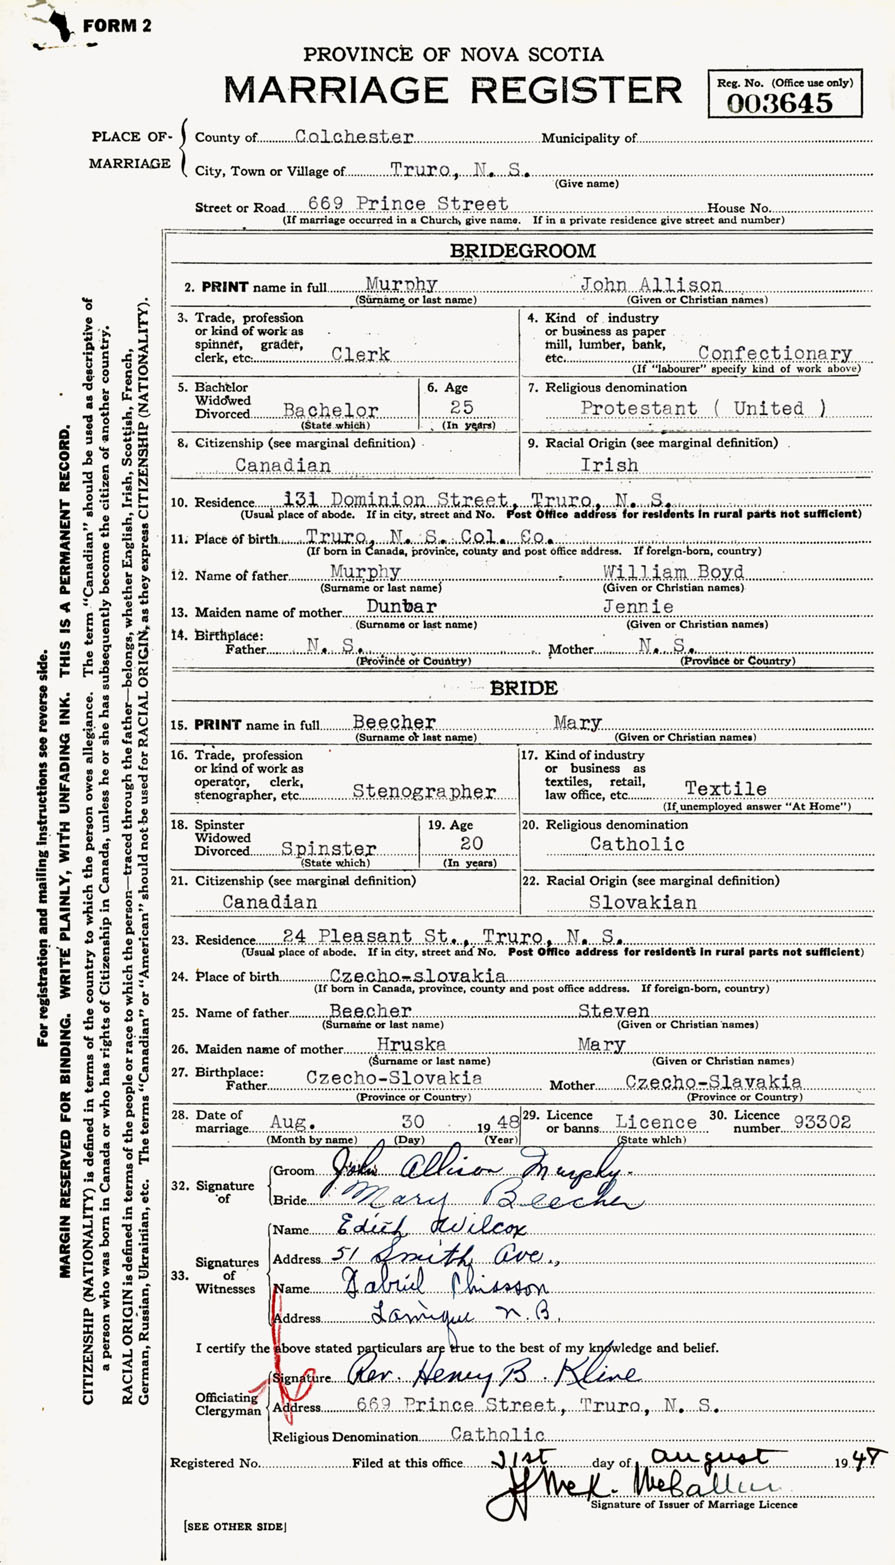 FORM 2
PROVINCE OF NOVA SCOTIA
MARRIAGE REGISTER
Reg. No. (Office use only)
003645
PLACE OF MARRIAGE
County of Colchester Municipality of
City, Town or Village of Truro, N. S.
(Give name)
Street or Road 669 Prince Street House No.
(If marriage occurred in a Church, give name. If in a private residence give street and number)
BRIDEGROOM
2. PRINT name in full Murphy John Allison
(Surname or last name) (Given or Christian names)
3. Trade, profession or kind of work as spinner, grader, clerk, etc. Clerk
4. Kind of industry or business as paper mill, lumber, bank, etc. Confectionary
(If "labourer" specify kind of work above)
5. Bachelor Widowed Divorced Bachelor
(State which)
6. Age 25
(In years)
7. Religious denomination
Protestant ( United )
8. Citizenship (see marginal definition)
Canadian
9. Racial Origin (see marginal definition)
Irish
10. Residence 131 Dominion Street, Truro, N. S.
(Usual place of abode. If in city, street and No. Post Office address for residents in rural parts not sufficient)
11. Place of birth Truro, N. S. Col. Co.
(If born in Canada, province, county and post office address. If foreign-born, country)
12. Name of father Murphy William Boyd
(Surname or last name) (Given or Christian names)
13. Maiden name of mother Dunbar Jennie
(Surname or last name) (Given or Christian names)
14. Birthplace:
Father N. S. Mother N. S.
(Province or Country) (Province or Country)
BRIDE
15. PRINT name in full Beecher Mary
(Surname or last name) (Given or Christian names)
16. Trade, profession or kind of work as operator, clerk, stenographer, etc. Stenographer
17. Kind of industry or business as textiles, retail, law office, etc. Textile
(If unemployed answer "At Home")
18. Spinster Widowed Divorced Spinster
(State which)
19. Age 20
(In years)
20. Religious denomination
Catholic
21. Citizenship (see marginal definition)
Canadian
22. Racial Origin (see marginal definition)
Slovakian
23. Residence 24 Pleasant St., Truro, N. S.
(Usual place of abode. If in city, street and No. Post Office address for residents in rural parts not sufficient)
24. Place of birth Czecho-slovakia
(If born in Canada, province, county and post office address. If foreign-born, country)
25. Name of father Beecher Steven
(Surname or last name) (Given or Christian names)
26. Maiden name of mother Hruska Mary
(Surname or last name) (Given or Christian names)
27. Birthplace:
Father Czecho-Slovakia Mother Czecho-Slavakia
(Province or Country) (Province or Country)
28. Date of marriage Aug. 30 1948
(Month by name) (Day) (Year)
29. Licence or banns Licence
(State which)
30. Licence number 93302
32. Signature of
Groom John Allison Murphy
Bride Mary Beecher
33. Signatures of Witnesses
Name Edith Wilcox
Address 51 Smith Ave.,
Name Gabriel Chiasson
Address Lamèque N.B.
I certify the above stated particulars are true to the best of my knowledge and belief.
Officiating Clergyman
Signature Rev. Henry B. Kline
Address 669 Prince Street, Truro, N. S.
Religious Denomination Catholic
Registered No. Filed at this office 21st day of August 1948
Signature of Issuer of Marriage Licence
[SEE OTHER SIDE]
For registration and mailing instructions see reverse side.
MARGIN RESERVED FOR BINDING. WRITE PLAINLY, WITH UNFADING INK. THIS IS A PERMANENT RECORD.
CITIZENSHIP (NATIONALITY) is defined in terms of the country to which the person owes allegiance. The term "Canadian" should be used as descriptive of
a person who was born in Canada or who has rights of Citizenship in Canada, unless he or she has subsequently become the citizen of another country.
RACIAL ORIGIN is defined in terms of the people or race to which the person—traced through the father—belongs, whether English, Irish, Scottish, French,
German, Russian, Ukrainian, etc. The terms "Canadian" or "American" should not be used for RACIAL ORIGIN, as they express CITIZENSHIP (NATIONALITY).